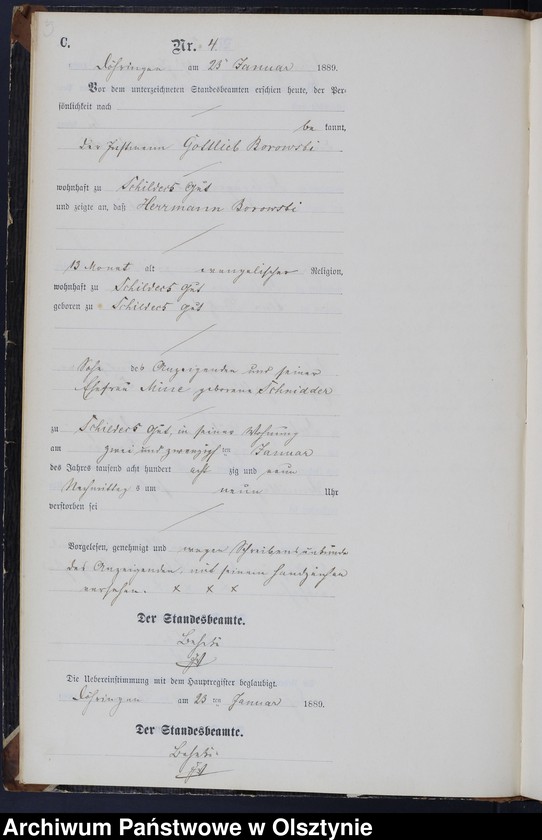 C.
Nr. 4.
Döhringen am 23 Januar 1889.
Vor dem unterzeichneten Standesbeamten erschien heute, der Per-
sönlichkeit nach
be kannt,
der Instmann Gottlieb Borowski
wohnhaft zu Schilders Gut
und zeigte an, daß Herrmann Borowski
13 Monat alt evangelischer Religion,
wohnhaft zu Schilders Gut
geboren zu Schilders Gut
Sohn des Anzeigenden und seiner
Ehefrau Mine geborene Schnidder
zu Schilders Gut, in seiner Wohnung
am zwei und zwanzigsten Januar
des Jahrs tausend acht hundert acht zig und neun
Nachmittags um neun Uhr
verstorben sei
Vorgelesen, genehmigt und wegen Schreibensunkunde
des Anzeigenden mit seinem Handzeichen
versehen. x x x
Der Standesbeamte.
Die Uebereinstimmung mit dem Hauptregister beglaubigt.
Döhringen am 23 ten Januar 1889.
Der Standesbeamte.
Archiwum Państwowe w Olsztynie